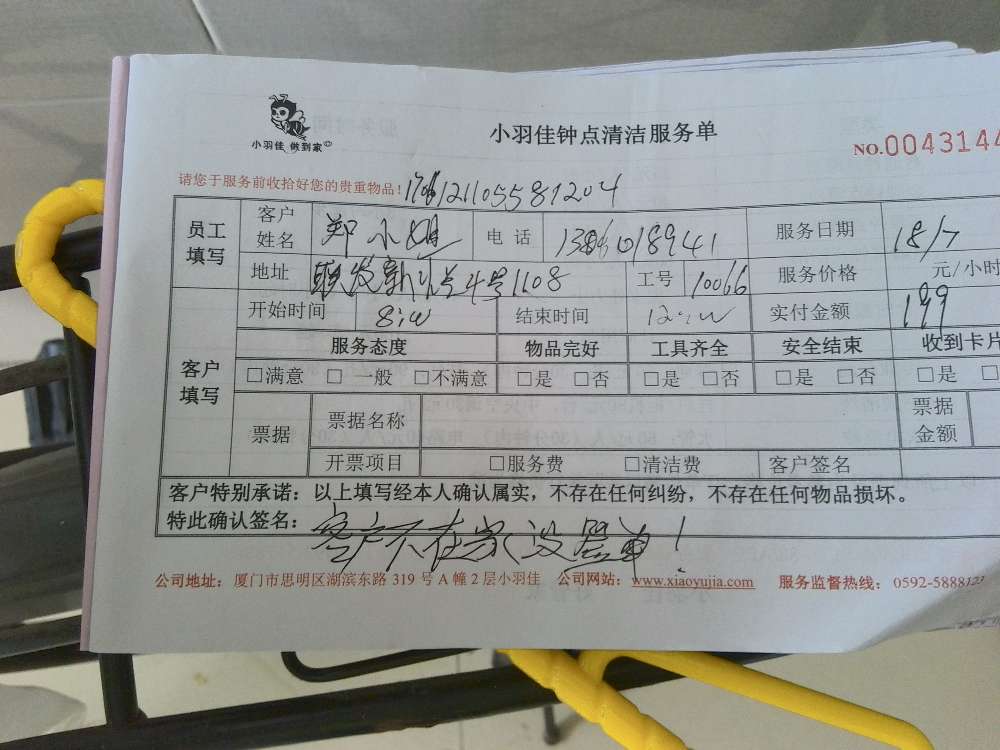 小羽佳 做到家
小羽佳钟点清洁服务单
NO.0043144
请您于服务前收拾好您的贵重物品!
员工填写 客户姓名 郑小 电话 服务日期 18/7
地址 4号1108 工号 10066 服务价格 元/小时
客户填写 开始时间 结束时间 实付金额 199
服务态度 物品完好 工具齐全 安全结束 收到卡片
□满意 □一般 □不满意 □是 □否 □是 □否 □是 □否 □是 □
票据 票据名称 票据金额
开票项目 □服务费 □清洁费 客户签名
客户特别承诺：以上填写经本人确认属实，不存在任何纠纷，不存在任何物品损坏。
特此确认签名：客户不在家没签单！
公司地址：厦门市思明区湖滨东路 319 号 A 幢 2 层小羽佳 公司网站：www.xiaoyujia.com 服务监督热线：0592-5888123